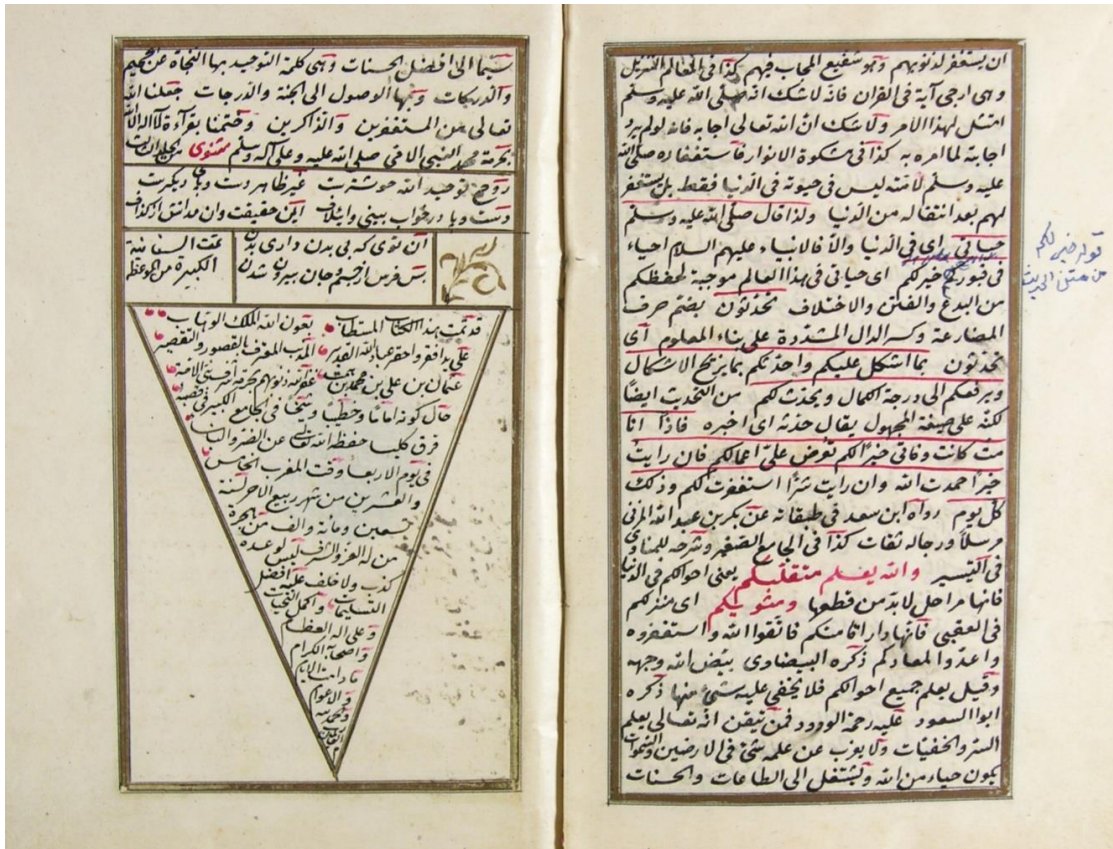 ان يستغفر لذنوبهم وهو شفيع المجاب فيهم كذا فى المعالم التنزيل
وهى ارجى آية فى القران فانه لاشك انه صلى الله عليه وسلم
امتثل لهذا الامر ولا شك ان الله تعالى اجابه فانه لولم يرد
اجابته لما امره به كذا فى مشكوة الانوار فاستغفاره صلى الله
عليه وسلم لامته ليس فى حيوته فى الدنيا فقط بل يستغفر
لهم بعد انتقاله من الدنيا ولذا قال صلى الله عليه وسلم
حياتى اى فى الدنيا والا فالانبياء عليهم السلام احياء
فى قبورهم خير لكم اى حياتى فى هذا العالم موجبة لحفظكم
من البدع والفتن والاختلاف تحدثون بضم حرف
المضارعة وكسر الدال المشددة على بناء المعلوم اى
تحدثون بما اشكل عليكم واحدثكم بما يزيح الاشكال
ويرفعكم الى درجة الكمال ويحدث لكم من التحديث ايضا
لكنه على صيغة المجهول يقال حدثه اى اخبره فاذا انا
مت كانت وفاتى خيرا لكم تعرض على اعمالكم فان رايت
خيرا حمدت الله وان رايت شرا استغفرت لكم وذلك
كل يوم رواه ابن سعد فى طبقاته عن بكر بن عبد الله المزنى
مرسلا ورجاله ثقات كذا فى الجامع الصغير وشرحه للمناوى
فى التيسير والله يعلم متقلبكم يعنى احوالكم فى الدنيا
فانها مراحل لابد من قطعها ومثويكم اى منزلكم
فى العقبى فانها دار اقامتكم فاتقوا الله واستغفروه
واعدوا لمعادكم ذكره البيضاوى بيض الله وجهه
وقيل يعلم جميع احوالكم فلا يخفى عليه شئ منها ذكره
ابوا السعود عليه رحمة الودود فمن تيقن انه تعالى يعلم
السر والخفيات ولا يعزب عن علمه شئ فى الارضين والسموات
يكون حياء من الله ويشتغل الى الطاعات والحسنات
قوله خير لكم
من متن الحديث
سيما الى افضل الحسنات وهى كلمة التوحيد بها النجاة عن الجحيم
والدركات وبها الوصول الى الجنة والدرجات جعلنا الله
تعالى من المستغفرين والذاكرين وختمنا بقراءة لا اله الا الله
بحرمة محمد النبى الامى صلى الله عليه وعلى آله وسلم مثنوى
روح توحيد الله خوشترست غير ظاهر دست وپاى ديكرست
دست وپا در خواب بينى وايتلاف اين حقيقت وان مدانش از كذاف
ان توى كه بى بدن دارى بدن
پس مترس از جسم وجان بيرون شدن
تمت السنانية
الكبيرة من الموعظة
قد تمت هذا الكتاب المستطاب بعون الله الملك الوهاب
على يد افقر واحقر عباد الله القدير المذنب المعترف بالقصور والتقصير
عثمان بن على بن محمد غفر له ذنوبهم بحرمة
حال كونه اماما وخطيبا وشيخا فى الجامع الكبير فى قصبة
حفظه الله تعالى عن الضر والباس
فى يوم الاربعا وقت المغرب الخامس
والعشرين من شهر ربيع الاخر لسنة
تسعين ومائة والف من هجرة
من له العز والشرف ليس لوعده
كذب ولا خلف عليه افضل
التسليمات واكمل التحيات
وعلى اله العظام
واصحابه الكرام
ما دامت الايام
والاعوام
والحمد لله
رب العالمين
م